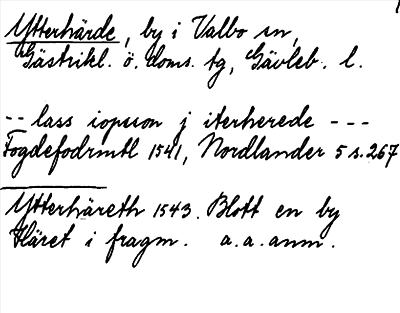 Ytterhärde, by i Valbo sn,
Gästrikl. ö. doms. tg, Gävleb. l.
-- lass iopsson j iterherede ---
Fogdefodrmtl 1541, Nordlander 5 s. 267
Ytterhäreth 1543. Blott en by
Häret i fragm. a. a. anm.